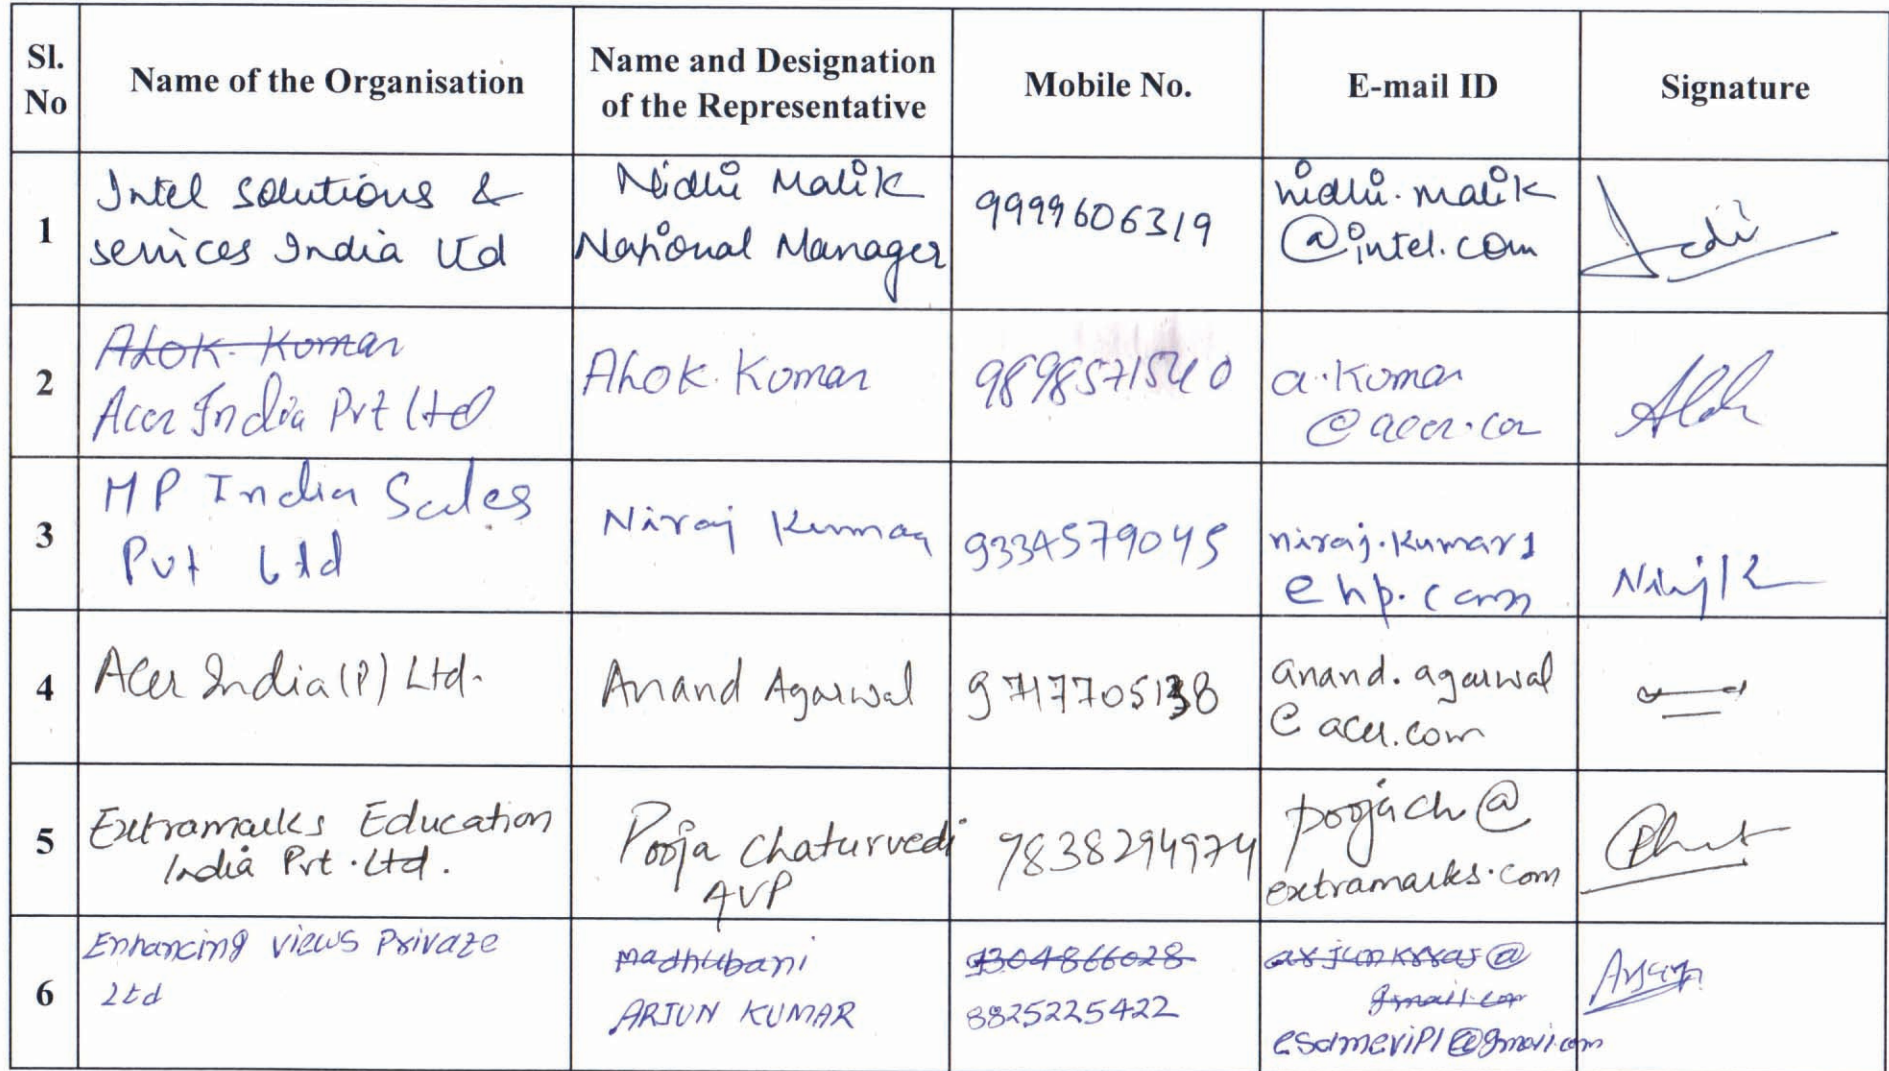 Sl. No
Name of the Organisation
Name and Designation of the Representative
Mobile No.
E-mail ID
Signature
1
Intel solutions &
services India Ltd
Nidhi Malik
National Manager
9999606319
nidhi.malik
@intel.com
2
Alok. Kumar
Acer India Pvt Ltd
Alok. Kumar
9898571540
a.kumar
@acer.com
3
HP India Sales
Pvt Ltd
Niraj Kumar
9334579045
niraj.kumar1
@hp.com
4
Acer India (P) Ltd.
Anand Agarwal
9717705138
anand.agarwal
@acer.com
5
Extramarks Education
India Pvt. Ltd.
Pooja Chaturvedi
AVP
9838294974
poojach@
extramarks.com
6
Enhancing views Private
Ltd
Madhubani
ARJUN KUMAR
9304866028
8825225422
arjunkrraj@
gmail.com